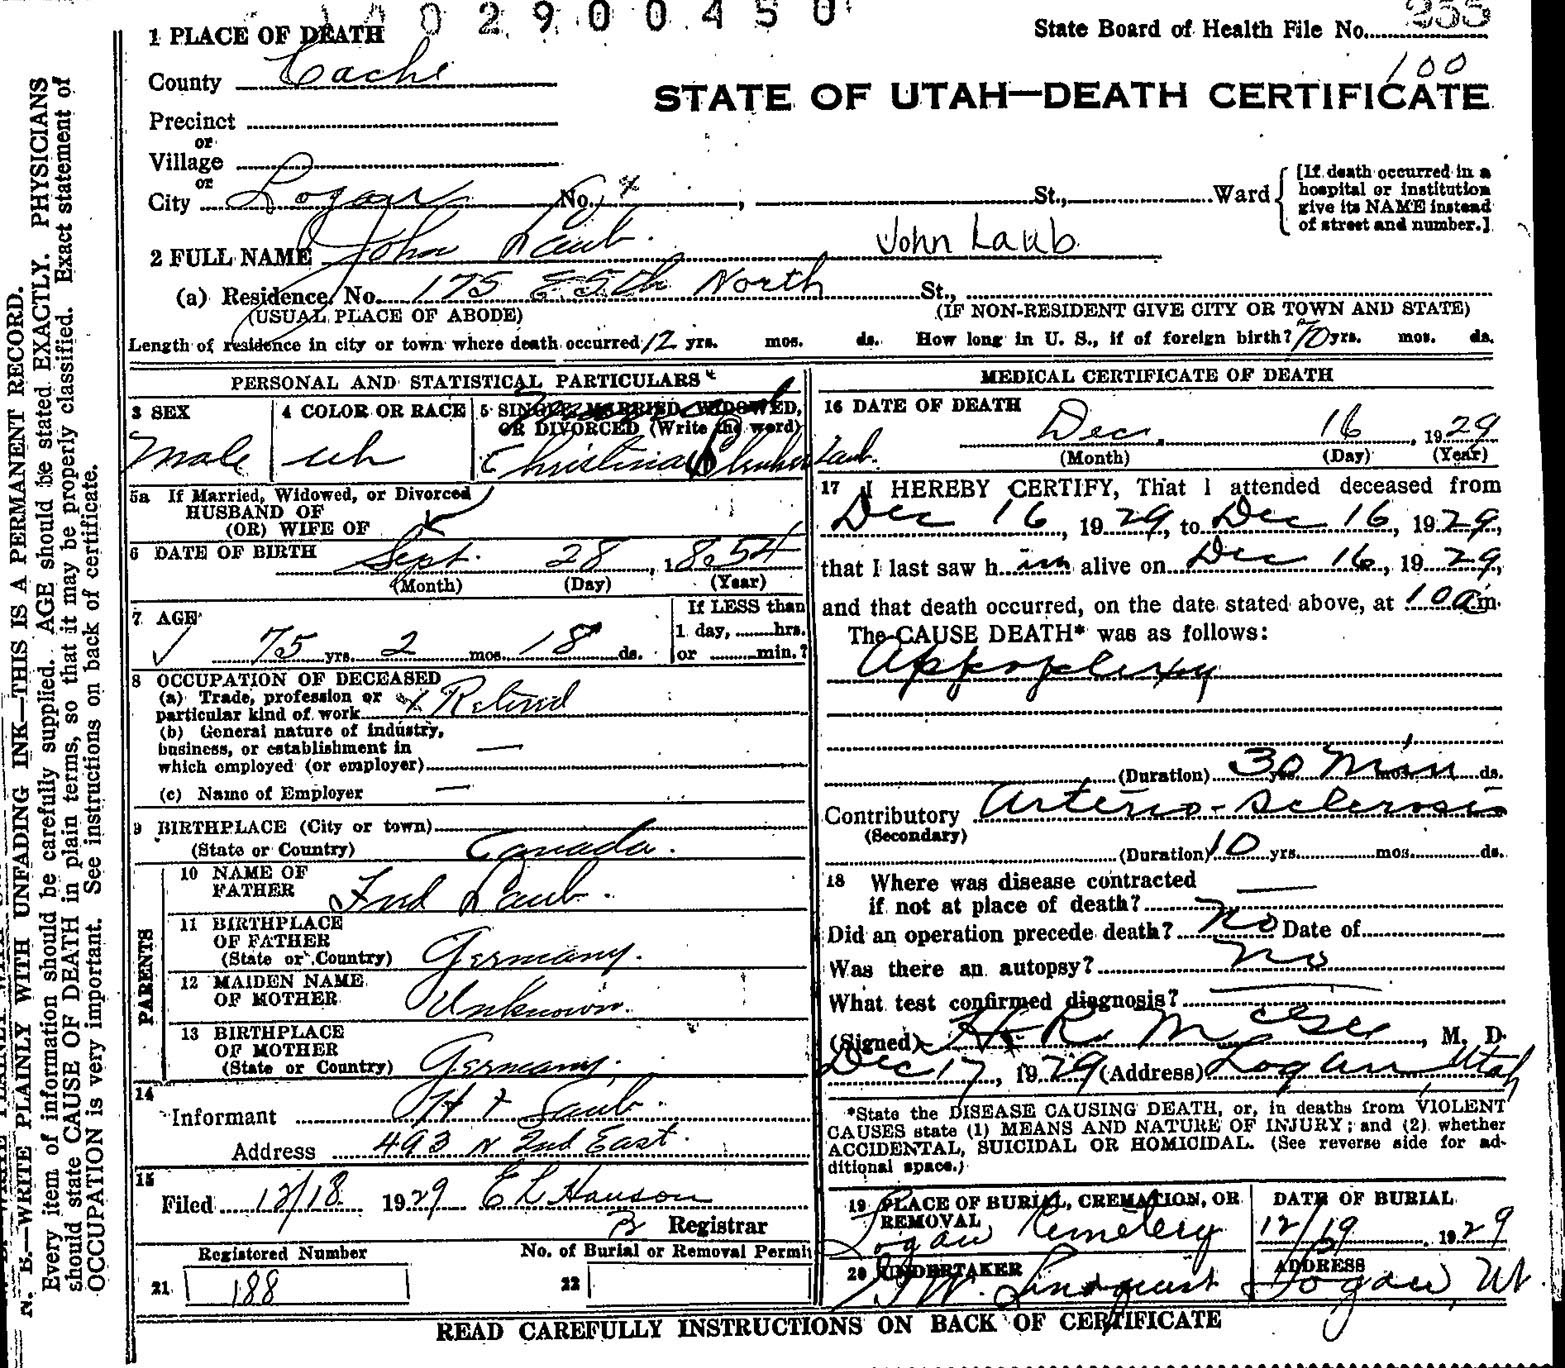 1 0 0 2 9 0 0 4 5 0
1 PLACE OF DEATH
State Board of Health File No. 255
100
County Cache
STATE OF UTAH—DEATH CERTIFICATE
Precinct
or
Village
or
City Logan No. x , St., Ward
[If death occurred in a
hospital or institution
give its NAME instead
of street and number.]
2 FULL NAME John Laub. John Laub
(a) Residence, No. 175 E 5th North St.,
(USUAL PLACE OF ABODE) (IF NON-RESIDENT GIVE CITY OR TOWN AND STATE)
Length of residence in city or town where death occurred 12 yrs. mos. ds. How long in U. S., if of foreign birth? 70 yrs. mos. ds.
PERSONAL AND STATISTICAL PARTICULARS
3 SEX
Male
4 COLOR OR RACE
wh
5 SINGLE, MARRIED, WIDOWED,
OR DIVORCED (Write the word)
Christina Laub.
5a If Married, Widowed, or Divorced
HUSBAND OF
(OR) WIFE OF
6 DATE OF BIRTH Sept. 28, 1854
(Month) (Day) (Year)
7 AGE
75 yrs. 2 mos. 18 ds.
If LESS than
1 day, hrs.
or min.?
8 OCCUPATION OF DECEASED
(a) Trade, profession or
particular kind of work x Retired
(b) General nature of industry,
business, or establishment in
which employed (or employer) —
(c) Name of Employer —
9 BIRTHPLACE (City or town)
(State or Country) Canada.
PARENTS
10 NAME OF
FATHER Fred Laub.
11 BIRTHPLACE
OF FATHER
(State or Country) Germany.
12 MAIDEN NAME
OF MOTHER Unknown.
13 BIRTHPLACE
OF MOTHER
(State or Country) Germany.
14
Informant Laub.
Address 493 N 2nd East.
15
Filed 12/18 1929 E L Hanson
Registrar
Registered Number
21 188
No. of Burial or Removal Permit
22
MEDICAL CERTIFICATE OF DEATH
16 DATE OF DEATH
Dec. 16, 1929
(Month) (Day) (Year)
17 I HEREBY CERTIFY, That I attended deceased from
Dec 16, 1929, to Dec 16, 1929,
that I last saw him alive on Dec 16, 1929,
and that death occurred, on the date stated above, at 10 a m.
The CAUSE DEATH* was as follows:
Appoplexy
(Duration) 30 Min yrs. mos. ds.
Contributory Arterio-sclerosis
(Secondary)
(Duration) 10 yrs. mos. ds.
18 Where was disease contracted
if not at place of death? —
Did an operation precede death? No Date of
Was there an autopsy? No
What test confirmed diagnosis? —
(Signed) H. R. McGee, M. D.
Dec 17, 1929 (Address) Logan, Utah
*State the DISEASE CAUSING DEATH, or, in deaths from VIOLENT
CAUSES state (1) MEANS AND NATURE OF INJURY; and (2) whether
ACCIDENTAL, SUICIDAL OR HOMICIDAL. (See reverse side for ad-
ditional space.)
19 PLACE OF BURIAL, CREMATION, OR
REMOVAL
Logan Cemetery
DATE OF BURIAL
12/19 1929
20 UNDERTAKER
W. Lindquist
ADDRESS
Logan, Ut.
READ CAREFULLY INSTRUCTIONS ON BACK OF CERTIFICATE
N. B.—WRITE PLAINLY WITH UNFADING INK—THIS IS A PERMANENT RECORD.
Every item of information should be carefully supplied. AGE should be stated EXACTLY. PHYSICIANS
should state CAUSE OF DEATH in plain terms, so that it may be properly classified. Exact statement of
OCCUPATION is very important. See instructions on back of certificate.